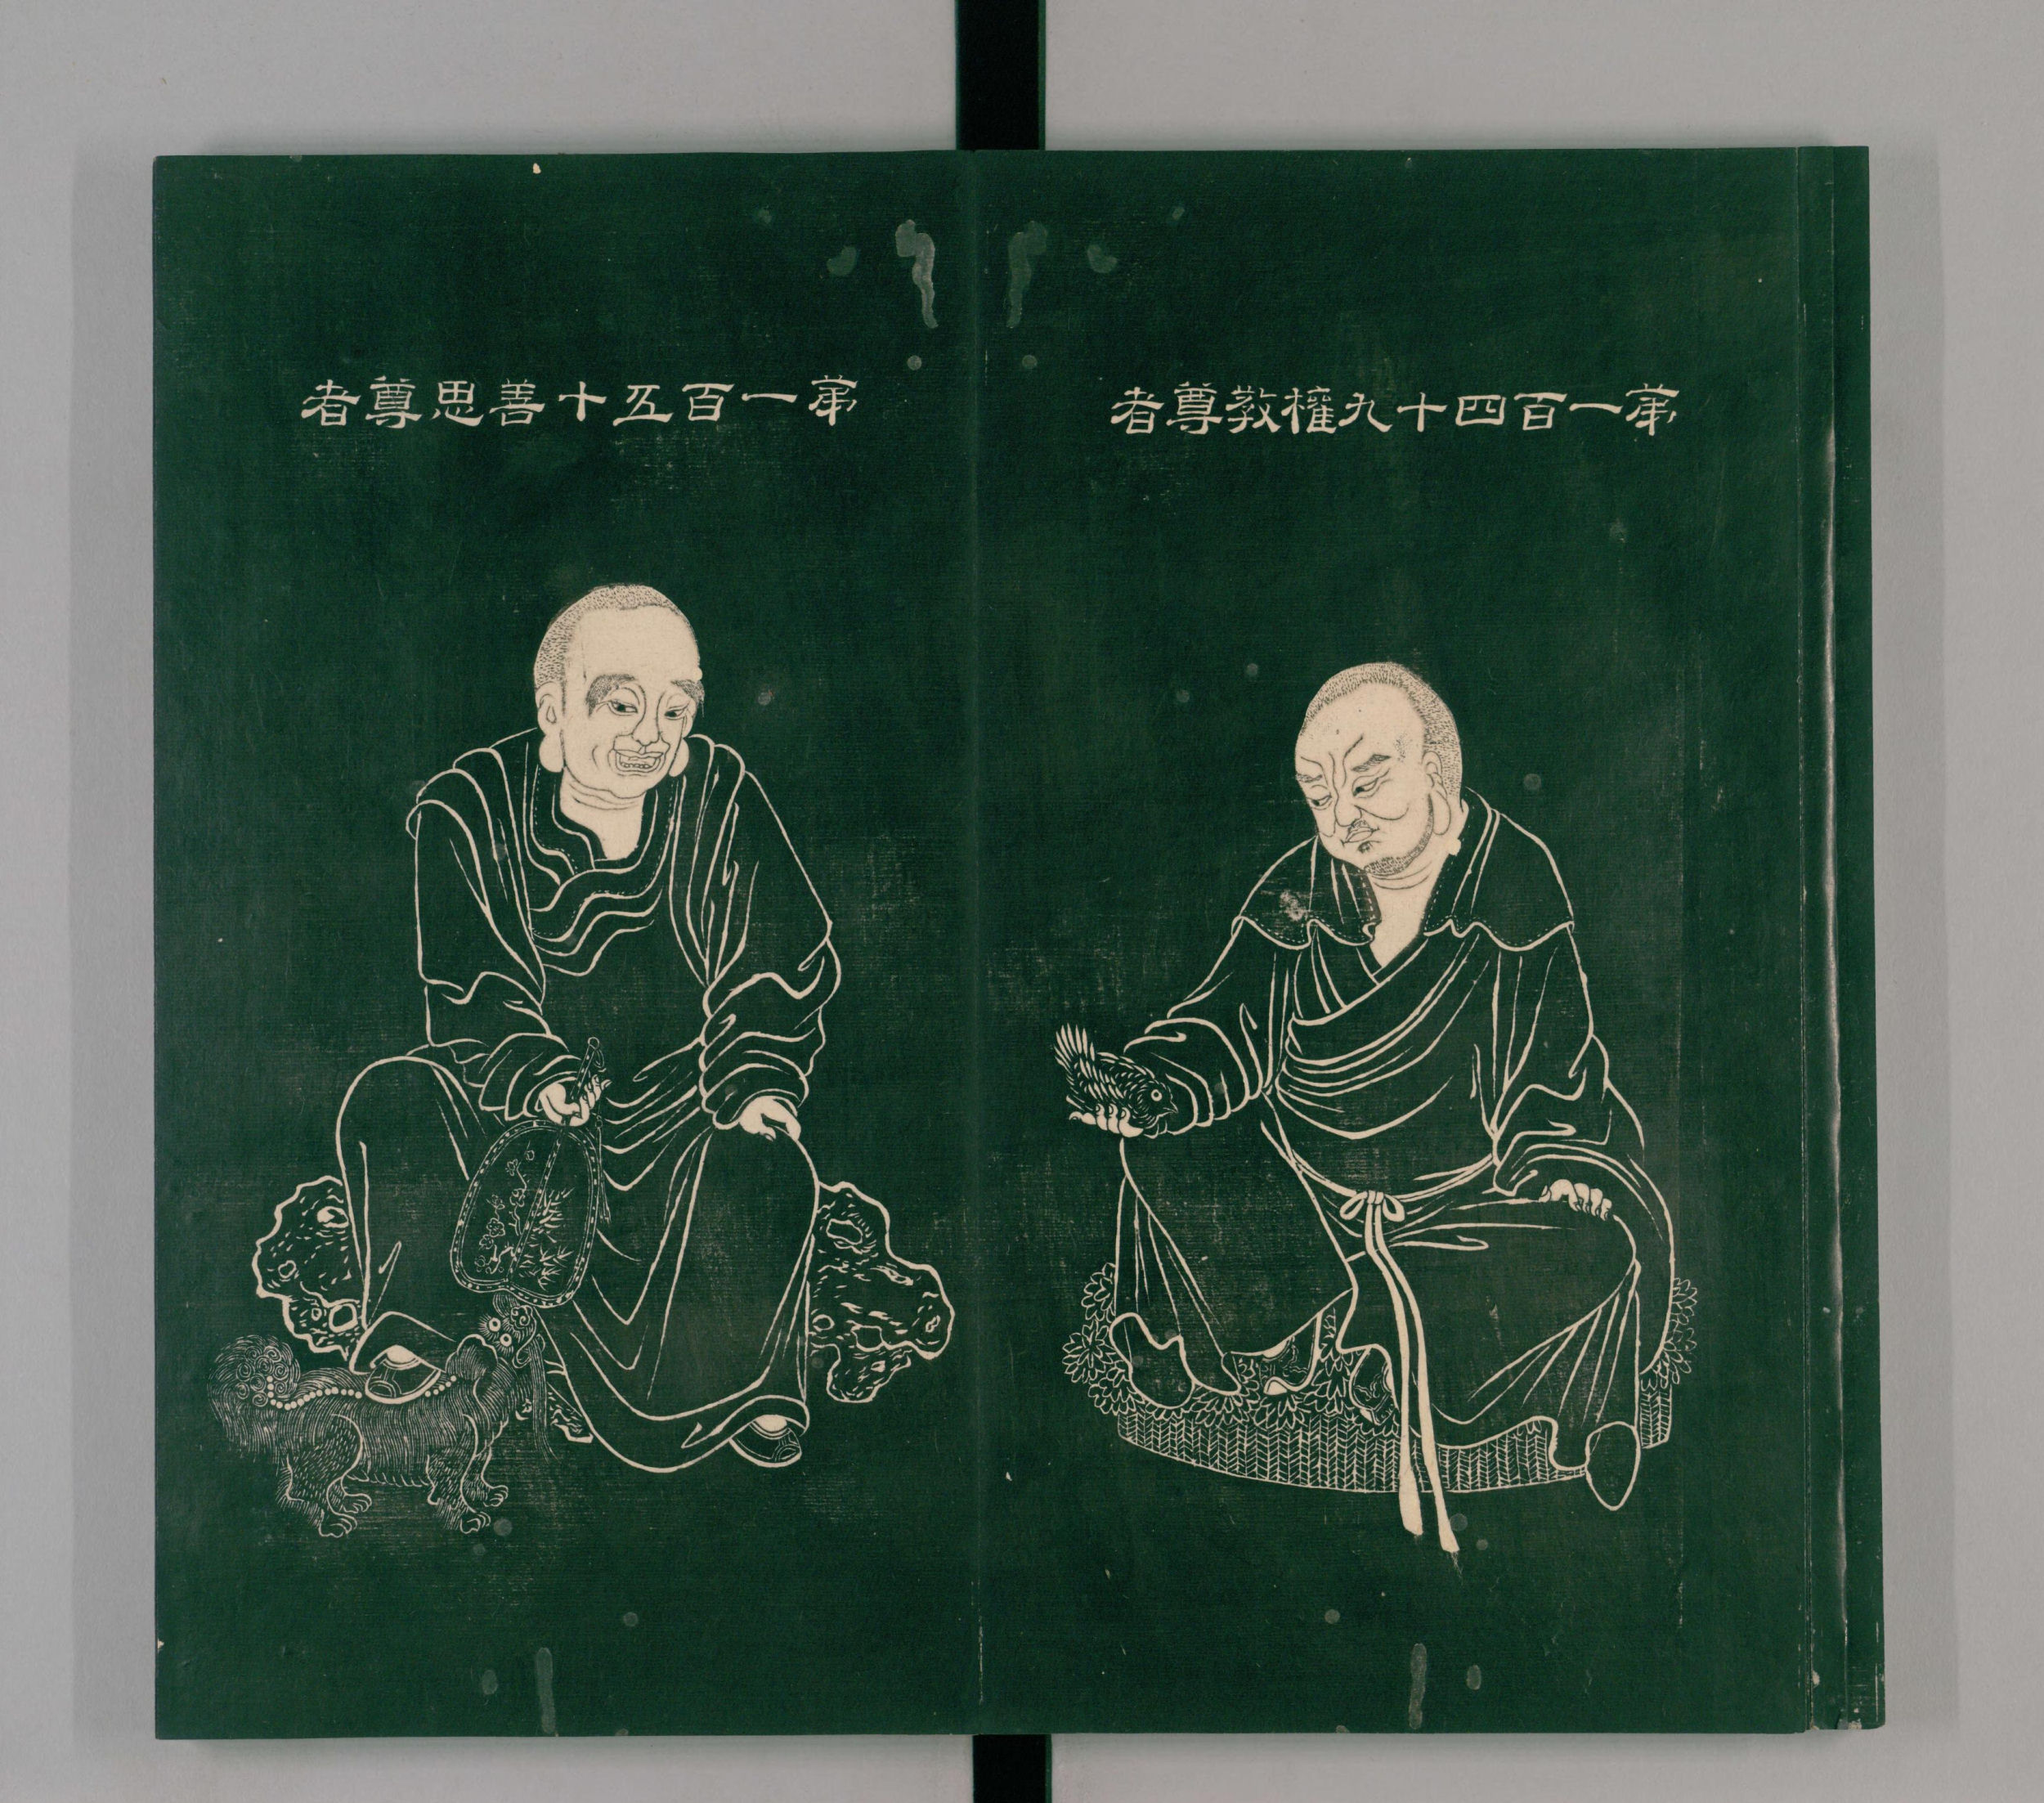 苐一百四十九權教尊者
苐一百五十善思尊者